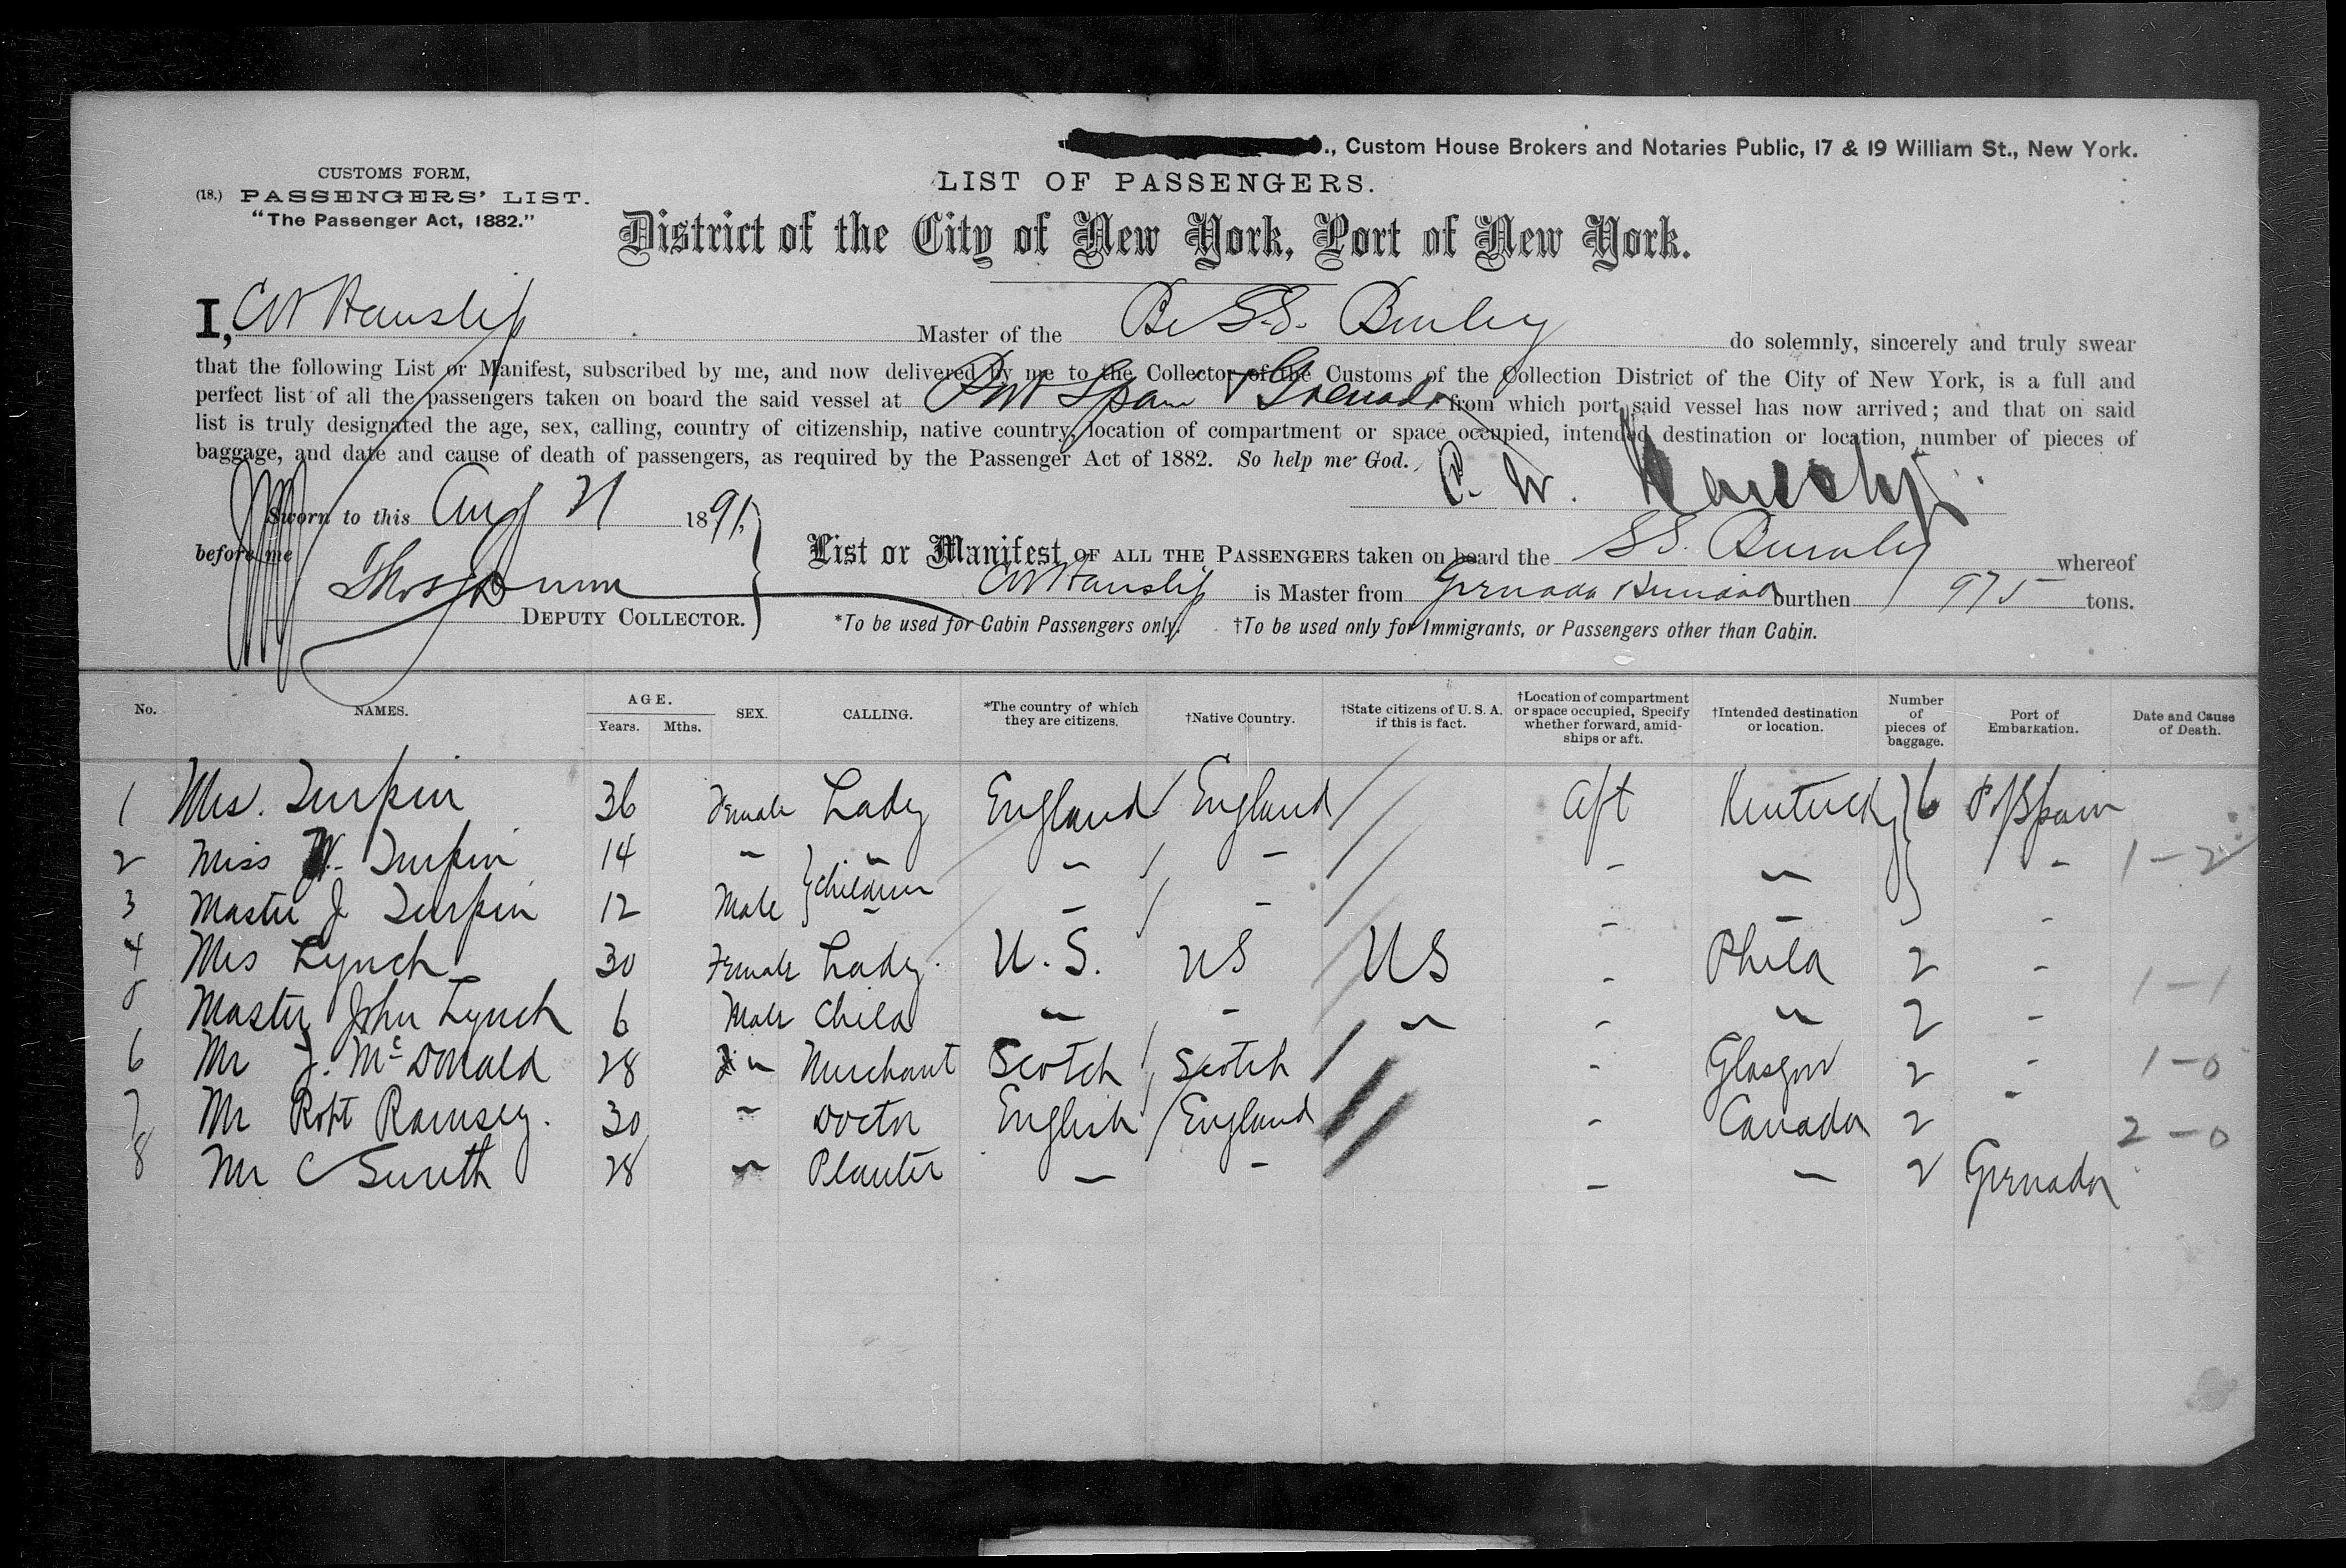 ., Custom House Brokers and Notaries Public, 17 & 19 William St., New York.
CUSTOMS FORM,
(18.) PASSENGERS' LIST.
"The Passenger Act, 1882."
LIST OF PASSENGERS.
District of the City of New York, Port of New York.
I, CW Hanslip Master of the Br S.S. Burnley do solemnly, sincerely and truly swear
that the following List or Manifest, subscribed by me, and now delivered by me to the Collector of the Customs of the Collection District of the City of New York, is a full and
perfect list of all the passengers taken on board the said vessel at Port Spain & Grenada from which port said vessel has now arrived; and that on said
list is truly designated the age, sex, calling, country of citizenship, native country, location of compartment or space occupied, intended destination or location, number of pieces of
baggage, and date and cause of death of passengers, as required by the Passenger Act of 1882. So help me God.
C. W. Hanslip
Sworn to this Aug 21 1891,
before me
Thos Dunn
DEPUTY COLLECTOR.
List or Manifest OF ALL THE PASSENGERS taken on board the SS. Burnley whereof
CW Hanslip is Master from Grenada Trinidad burthen 975 tons.
*To be used for Cabin Passengers only. †To be used only for Immigrants, or Passengers other than Cabin.
No. NAMES. AGE. Years. Mths. SEX. CALLING. *The country of which they are citizens. †Native Country. †State citizens of U. S. A. if this is fact. †Location of compartment or space occupied, Specify whether forward, amidships or aft. †Intended destination or location. Number of pieces of baggage. Port of Embarkation. Date and Cause of Death.
1 Mrs. Turpin 36 Female Lady England England Aft Kentucky 6 P of Spain
2 Miss W. Turpin 14 " " " " " " " 1-2
3 Master J Turpin 12 Male children " " " " " "
4 Mrs Lynch 30 Female Lady. U.S. US US " Phila 2 "
5 Master John Lynch 6 Male Child " " " " " 2 " 1-1
6 Mr J. McDonald 28 " Merchant Scotch Scotch " Glasgow 2 " 1-0
7 Mr Robt Ramsey. 30 " Doctor English England " Canada 2 " 2-0
8 Mr C Smith 28 " Planter " " " " 2 Grenada